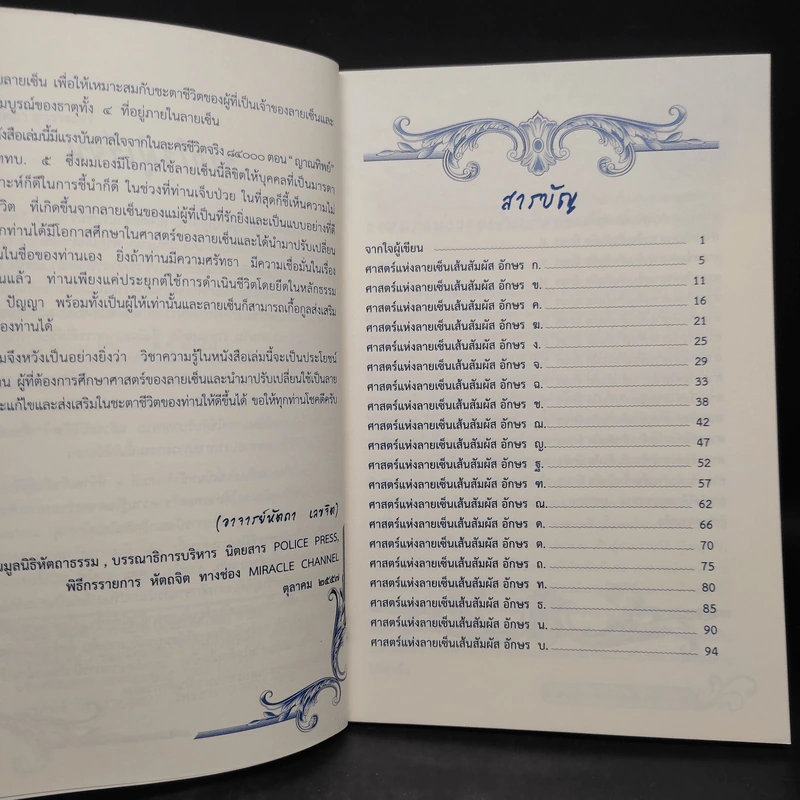 ลายเซ็น เพื่อให้เหมาะสมกับชะตาชีวิตของผู้ที่เป็นเจ้าของลายเซ็นและ
มบูรณ์ของธาตุทั้ง ๔ ที่อยู่ภายในลายเซ็น
ังสือเล่มนี้มีแรงบันดาลใจจากในละครชีวิตจริง ๘๔๐๐๐ ตอน "ญาณทิพย์"
ททบ. ๕ ซึ่งผมเองมีโอกาสใช้ลายเซ็นนี้ลิขิตให้บุคคลที่เป็นมารดา
าะห์ก็ดีในการชี้นำก็ดี ในช่วงที่ท่านเจ็บป่วย ในที่สุดก็ชี้เห็นความไม่
ชีวิต ที่เกิดขึ้นจากลายเซ็นของแม่ผู้ที่เป็นที่รักยิ่งและเป็นแบบอย่างที่ดี
กท่านได้มีโอกาสศึกษาในศาสตร์ของลายเซ็นและได้นำมาปรับเปลี่ยน
นในชื่อของท่านเอง ยิ่งถ้าท่านมีความศรัทธา มีความเชื่อมั่นในเรื่อง
นแล้ว ท่านเพียงแค่ประยุกต์ใช้การดำเนินชีวิตโดยยึดในหลักธรรม
ปัญญา พร้อมทั้งเป็นผู้ให้เท่านั้นและลายเซ็นก็สามารถเกื้อกูลส่งเสริม
องท่านได้
มจึงหวังเป็นอย่างยิ่งว่า วิชาความรู้ในหนังสือเล่มนี้จะเป็นประโยชน์
าน ผู้ที่ต้องการศึกษาศาสตร์ของลายเซ็นและนำมาปรับเปลี่ยนใช้เป็นลาย
ะแก้ไขและส่งเสริมในชะตาชีวิตของท่านให้ดีขึ้นได้ ขอให้ทุกท่านโชคดีครับ
(อาจารย์หัตถา เลขจิต)
นมูลนิธิหัตถาธรรม , บรรณาธิการบริหาร นิตยสาร POLICE PRESS,
พิธีกรรายการ หัตถจิต ทางช่อง MIRACLE CHANNEL
ตุลาคม ๒๕๕๗
สารบัญ
จากใจผู้เขียน 1
ศาสตร์แห่งลายเซ็นเส้นสัมผัส อักษร ก. 5
ศาสตร์แห่งลายเซ็นเส้นสัมผัส อักษร ข. 11
ศาสตร์แห่งลายเซ็นเส้นสัมผัส อักษร ค. 16
ศาสตร์แห่งลายเซ็นเส้นสัมผัส อักษร ฆ. 21
ศาสตร์แห่งลายเซ็นเส้นสัมผัส อักษร ง. 25
ศาสตร์แห่งลายเซ็นเส้นสัมผัส อักษร จ. 29
ศาสตร์แห่งลายเซ็นเส้นสัมผัส อักษร ฉ. 33
ศาสตร์แห่งลายเซ็นเส้นสัมผัส อักษร ช. 38
ศาสตร์แห่งลายเซ็นเส้นสัมผัส อักษร ฌ. 42
ศาสตร์แห่งลายเซ็นเส้นสัมผัส อักษร ญ. 47
ศาสตร์แห่งลายเซ็นเส้นสัมผัส อักษร ฐ. 52
ศาสตร์แห่งลายเซ็นเส้นสัมผัส อักษร ฑ. 57
ศาสตร์แห่งลายเซ็นเส้นสัมผัส อักษร ณ. 62
ศาสตร์แห่งลายเซ็นเส้นสัมผัส อักษร ด. 66
ศาสตร์แห่งลายเซ็นเส้นสัมผัส อักษร ต. 70
ศาสตร์แห่งลายเซ็นเส้นสัมผัส อักษร ถ. 75
ศาสตร์แห่งลายเซ็นเส้นสัมผัส อักษร ท. 80
ศาสตร์แห่งลายเซ็นเส้นสัมผัส อักษร ธ. 85
ศาสตร์แห่งลายเซ็นเส้นสัมผัส อักษร น. 90
ศาสตร์แห่งลายเซ็นเส้นสัมผัส อักษร บ. 94